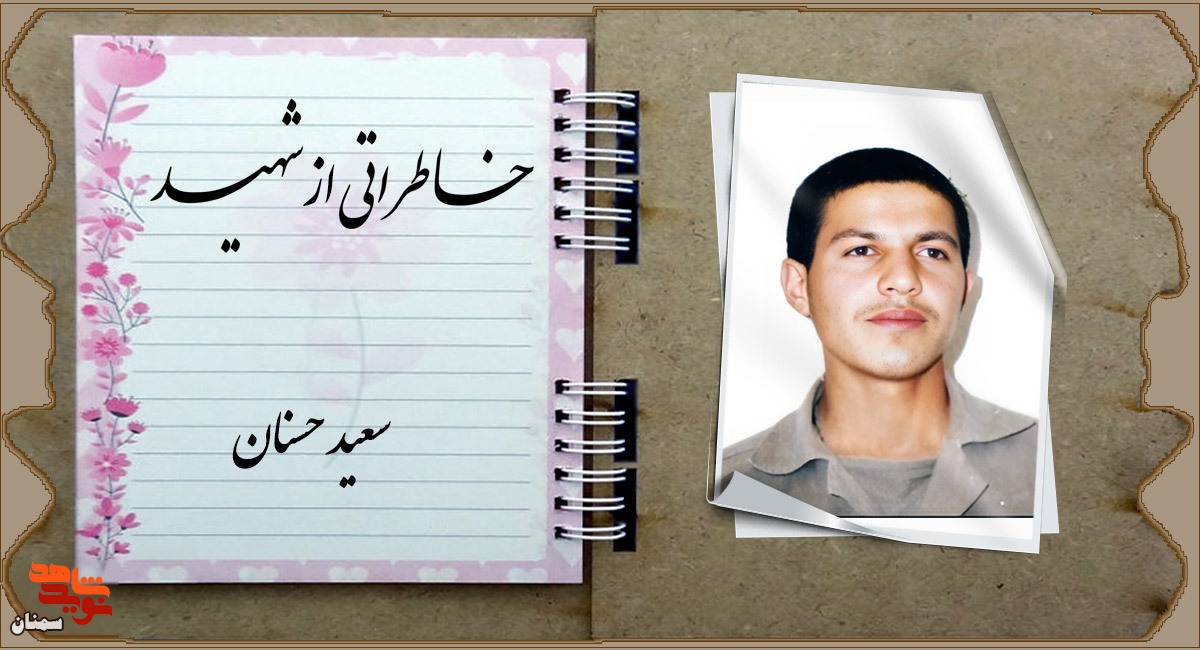 خاطراتی از شهید
سعید حسنان
نوید شاهد
سمنان